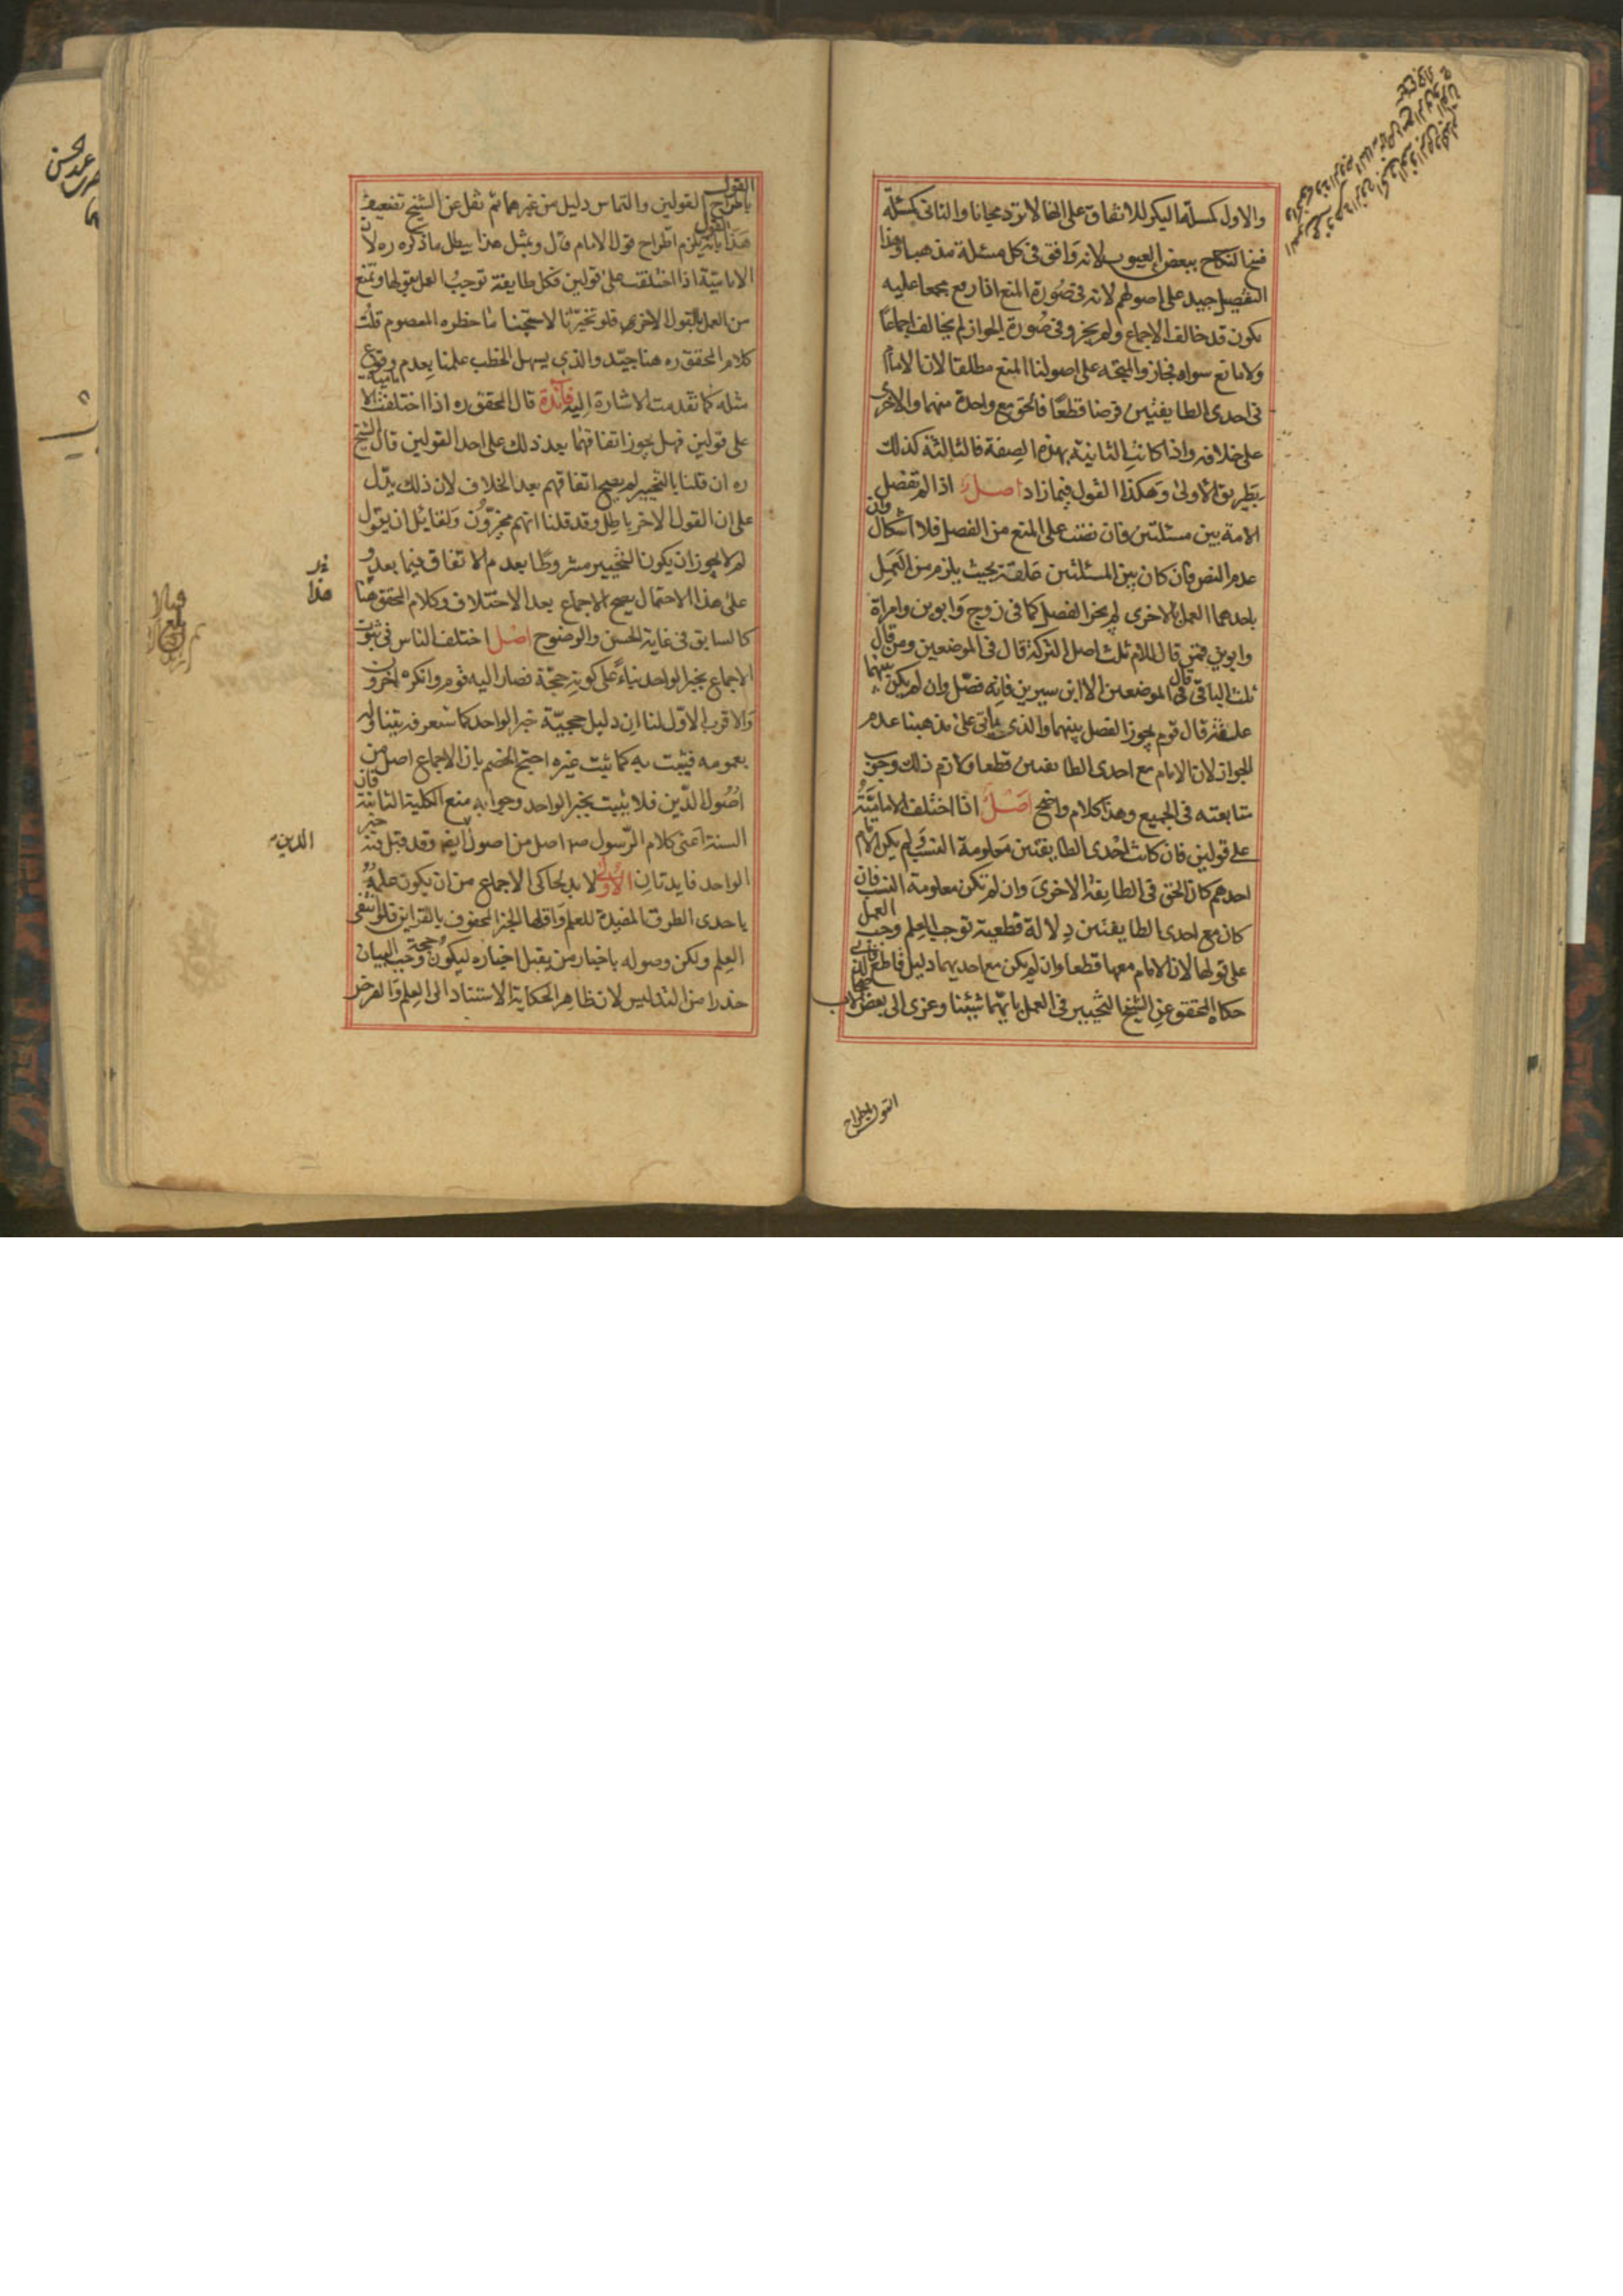 والاول كمسئلة البكر للاتفاق على انها لا ترد مجانا والثانى كمسئلة
فسخ النكاح ببعض العيوب لانه وافق فى كل مسئلة مذهبا وهذا
التفصيل جيد على اصولهم لانه فى صورة المنع اذا رفع مجمعا عليه
يكون قد خالف الاجماع ولم يجز وفى صورة الجواز لم يخالف اجماعا
ولا مانع سواه فجاز والمتجه على اصولنا المنع مطلقا لان الامام
فى احدى الطايفتين فرضا قطعا فالحق مع واحدة منهما والاخرى
على خلافه واذا كانت الثانية بهذه الصفة فالثالثة كذلك
بطريق الاولى وهكذا القول فيما زاد اصل اذا لم تفصل
الامة بين مسئلتين فان نصت على المنع من الفصل فلا اشكال وان
عدم النص فان كان بين المسئلتين علقة بحيث يلزم من العمل
باحدهما العمل بالاخرى لم يجز الفصل كما فى زوج وابوين وامراة
وابوين فمن قال للام ثلث اصل التركة قال فى الموضعين ومن قال
ثلث الباقى قال فى الموضعين الا ابن سيرين فانه فصل وان لم يكن بينهما
علقة قال قوم يجوز الفصل بينهما والذى ياتى على مذهبنا عدم
الجواز لان الامام مع احدى الطايفتين قطعا ولازم ذلك وجوب
متابعته فى الجميع وهذا كلام واضح اصل اذا اختلف الامامية
على قولين فان كانت احدى الطايفتين معلومة النسب ولم يكن الامام
احدهم كان الحق فى الطايفة الاخرى وان لم تكن معلومة النسب فان
كان مع احدى الطايفتين دلالة قطعية توجب العلم وجب العمل
على قولها لان الامام معها قطعا وان لم يكن مع احديهما دليل قاطع فالذى
حكاه المحقق عن الشيخ التخيير فى العمل بايهما شئنا وعزى الى بعض الاصحاب
القول باطراح
القول
باطراح القولين والتماس دليل من غيرهما ثم نقل عن الشيخ تضعيف
هذا القول بانه يلزم اطراح قول الامام قال وبمثل هذا يبطل ما ذكره ره لان
الامامية اذا اختلفت على قولين فكل طايفة توجب العمل بقولها وتمنع
من العمل بالقول الاخر فلو تخيرنا لاستبحنا ما حظره المعصوم قلت
كلام المحقق ره هنا جيد والذى يسهل الخطب علمنا بعدم وقوع
مثله كما تقدمت الاشارة اليه فائدة قال المحقق ره اذا اختلفت الامامية
على قولين فهل يجوز اتفاقها بعد ذلك على احد القولين قال الشيخ
ره ان قلنا بالتخيير لم يصح اتفاقهم بعد الخلاف لان ذلك يدل
على ان القول الاخر باطل وقد قلنا انهم مخيرون ولقايل ان يقول
لم لا يجوز ان يكون التخيير مشروطا بعدم الاتفاق فيما بعد و
على هذا الاحتمال يصح الاجماع بعد الاختلاف وكلام المحقق هنا
كالسابق فى غاية الحسن والوضوح اصل اختلف الناس فى ثبوت
الاجماع بخبر الواحد بناء على كونه حجة فصار اليه قوم وانكره اخرون
والاقرب الاول لنا ان دليل حجية خبر الواحد كما ستعرفه يتناوله
بعمومه فيثبت به كما يثبت غيره احتج الخصم بان الاجماع اصل من
اصول الدين فلا يثبت بخبر الواحد وجوابه منع الكلية الثانية فان
السنة اعنى كلام الرسول ص اصل من اصول ايضا وقد قبل فيه خبر
الدين
الواحد فايدتان الاولى لا بد لحاكى الاجماع من ان يكون علمه
باحدى الطرق المفيدة للعلم واقلها الخبر المحفوف بالقراين فلو انتفى
العلم ولكن وصوله باخبار من يقبل اخباره ليكون حجة وجب البيان
حذرا من التدليس لان ظاهر الحكاية الاستناد الى العلم والفرض